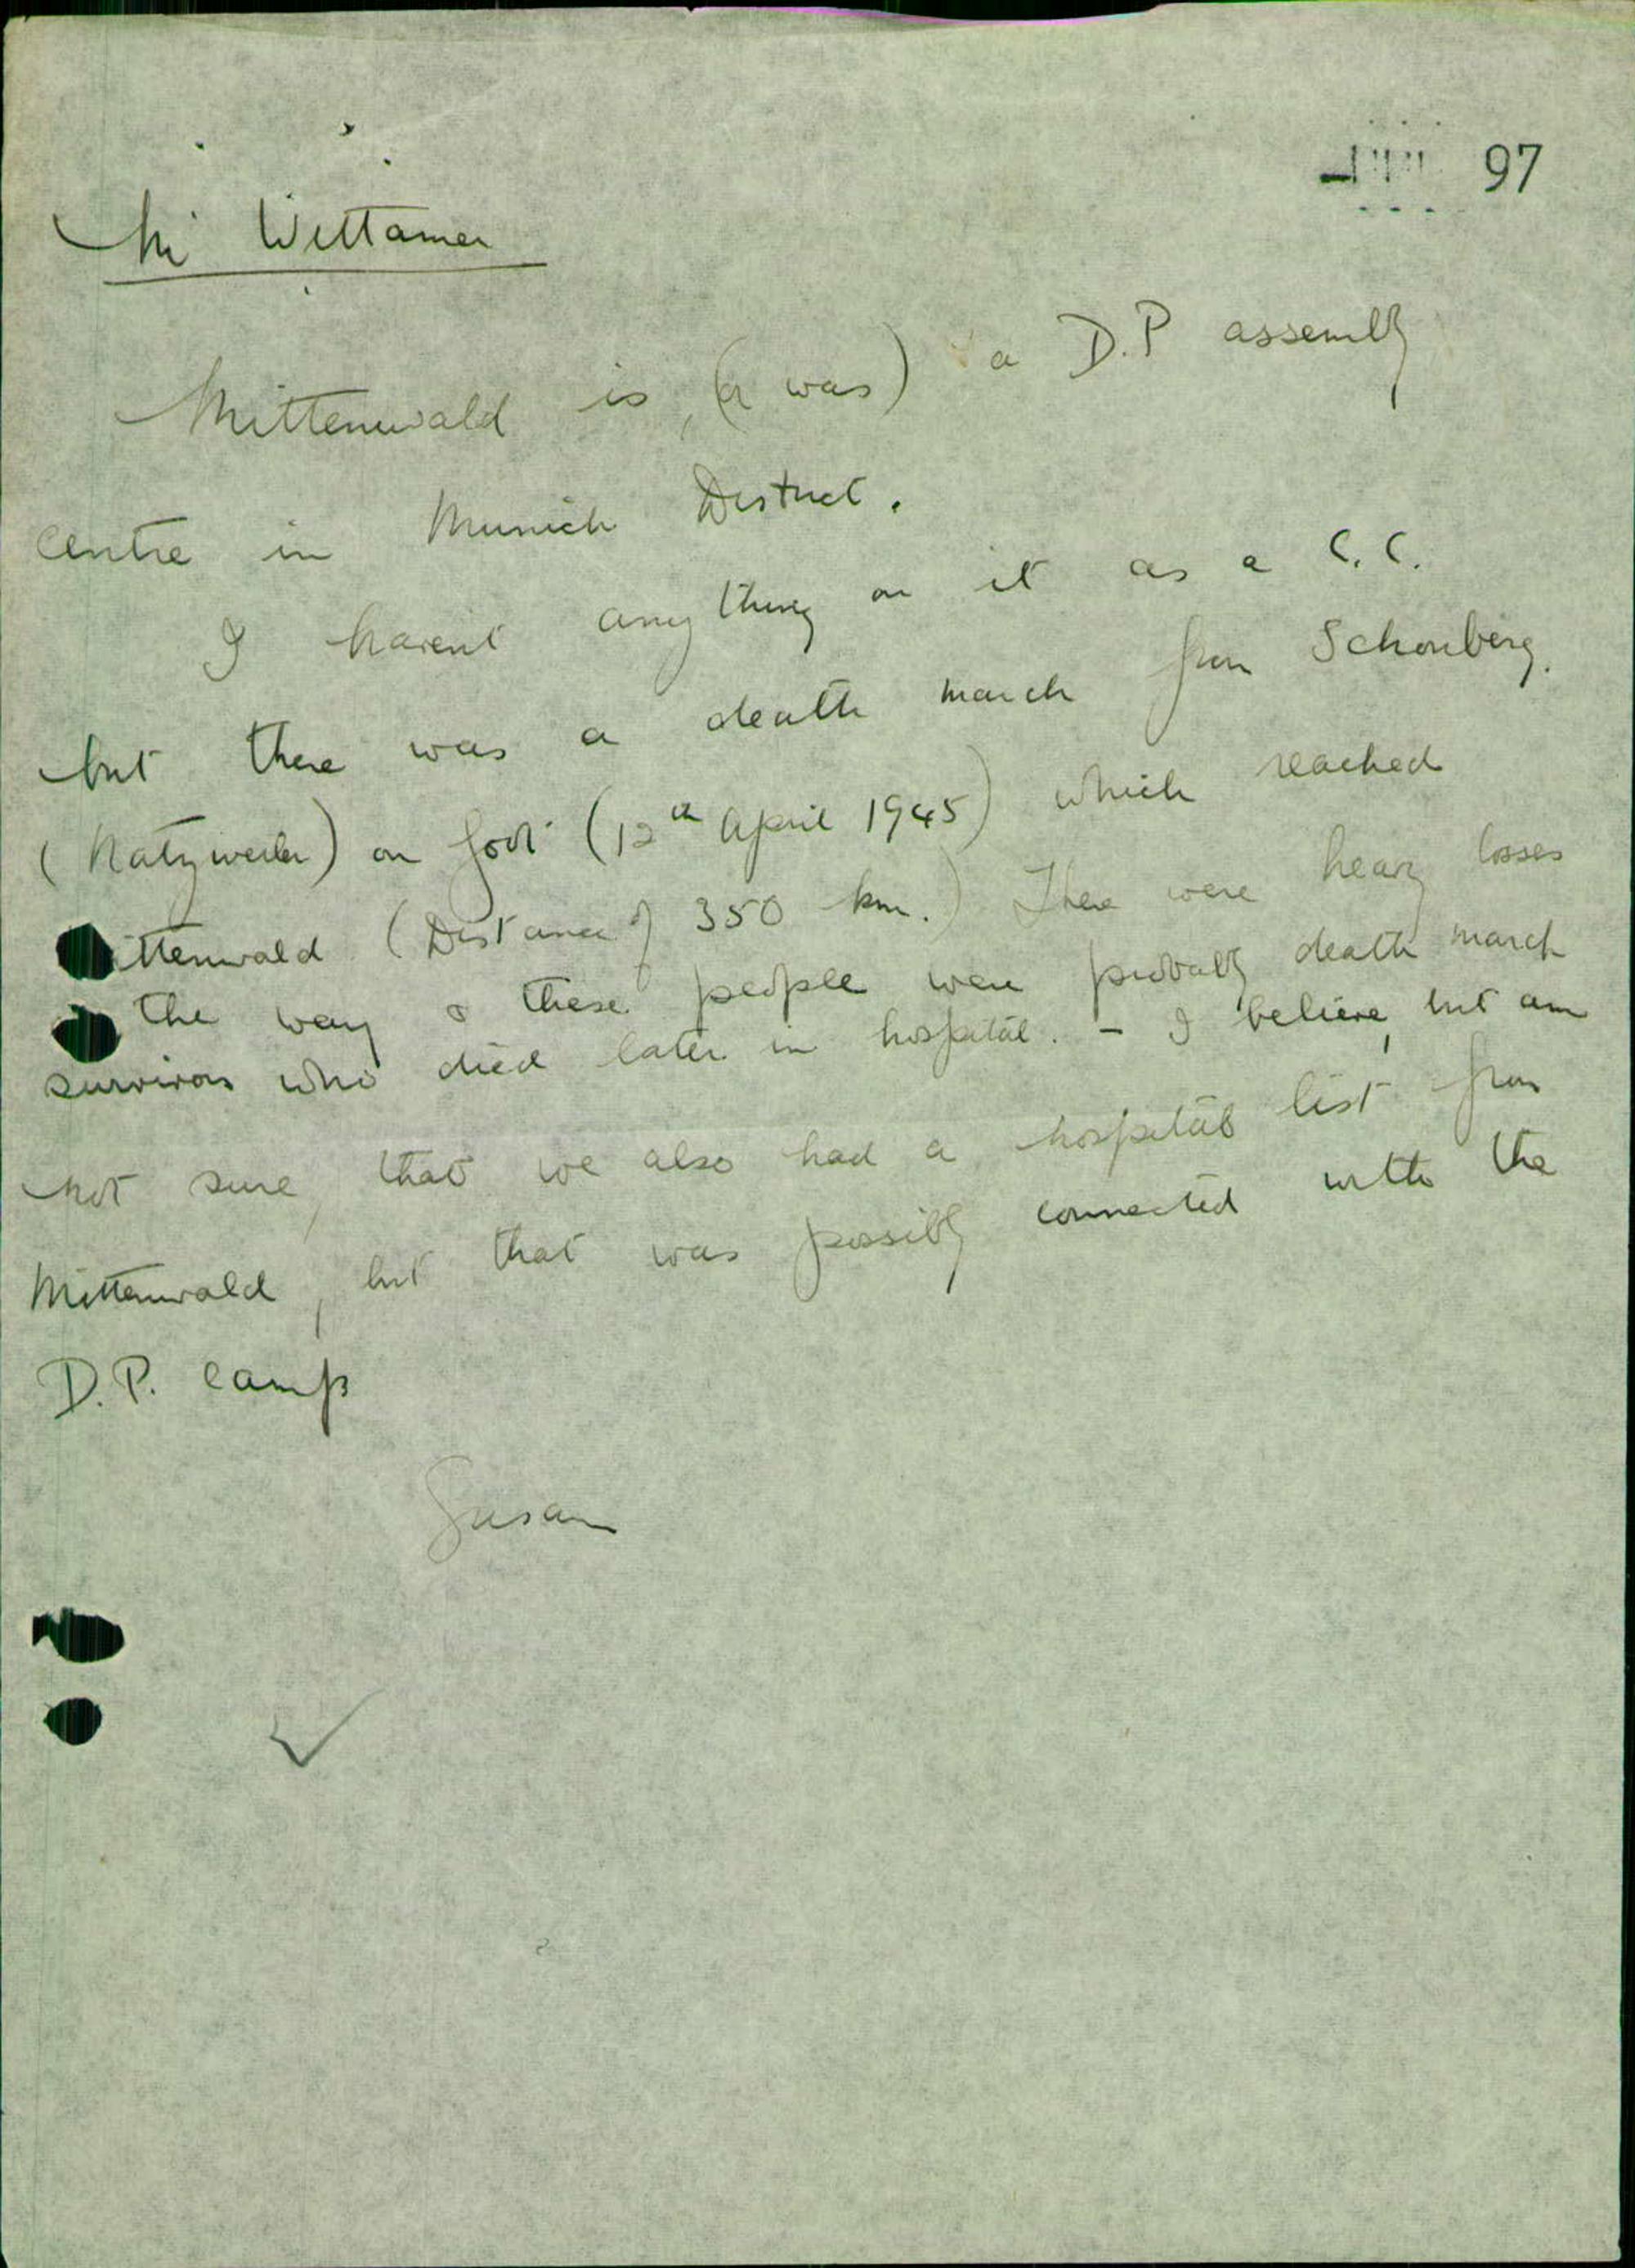 97
Mr Wittamer
Mittenwald is, (or was) a D.P assembly
centre in Munich District.
I havent anything on it as a C.C.
but there was a death march from Schonberg.
(Natzweiler) on foot (12th April 1945) which reached
ittenwald (Distance of 350 km.) There were heavy losses
the way & these people were probably death march
survivors who died later in hospital. - I believe, but am
not sure, that we also had a hospital list from
Mittenwald, but that was possibly connected with the
D.P. camp
Susan